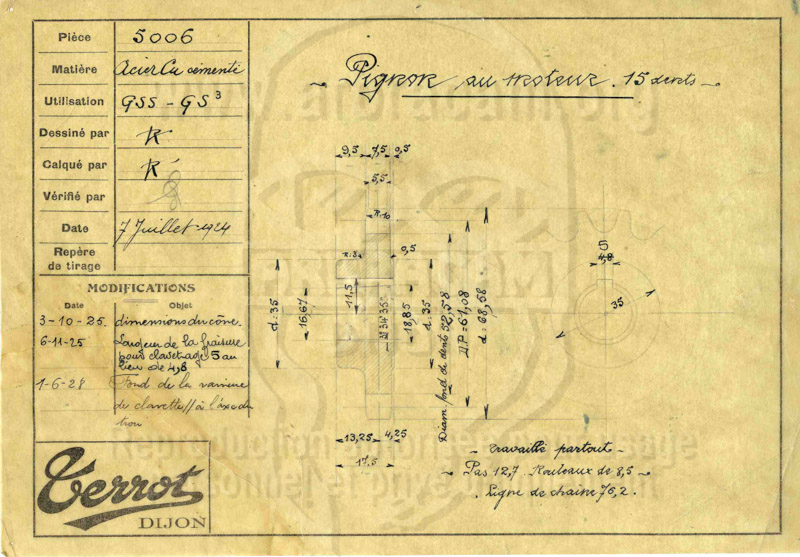 Pièce 5006
Matière Acier Cu cémenté
Utilisation GSS - GS³
Dessiné par R
Calqué par R
Vérifié par
Date 7 Juillet 1924
Repère
de tirage
MODIFICATIONS
Date Objet
3-10-25. dimensions du cône.
6-11-25 Largeur de la fraisure
pour clavetage 5 au
lieu de 4,8
1-6-28 Fond de la rainure
de clavette // à l'axe du
trou
Terrot
DIJON
Pignon au moteur. 15 dents
9,5 7,5 0,5
5,5
R.10
R.3 0,5
11,5
d=35
16,67
18,85
d=35
Diam. fond de dents 52,58
D.P=61,08
d=68,58
13,25 4,25
17,5
5
4,8
35
travaillé partout
Pas 12,7 Rouleaux de 8,5
Ligne de chaîne 76,2.